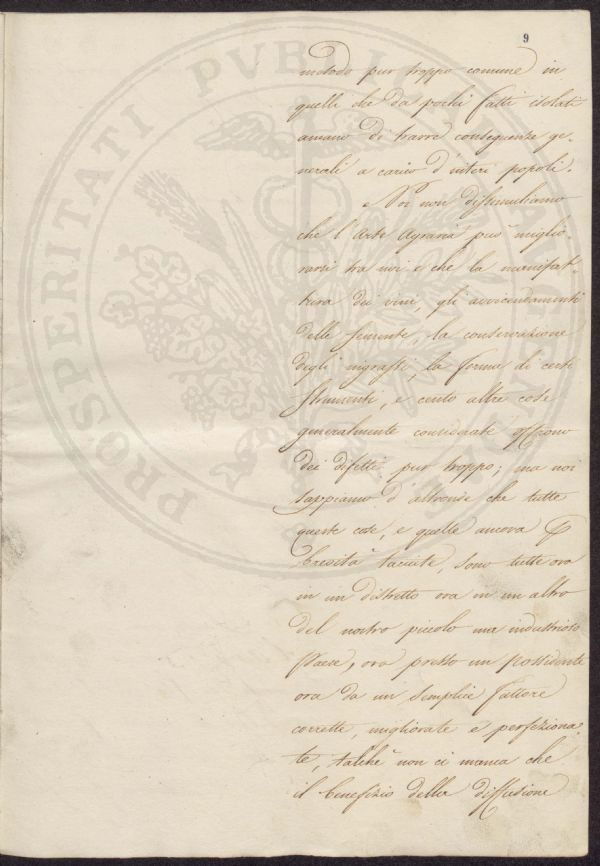 9
metodo pur troppo comune in
quelli che da pochi fatti isolati
amano di trarre conseguenze ge-
nerali a carico d'interi popoli.
e Noi non dissimuliamo
che l'Arte Agraria può miglio-
rarsi tra noi e che la manifat-
tura dei vini, gli avvicendamenti
delle semente, la conservazione
degli ingrassi, la forma di certi
strumenti, e cento altre cose
generalmente considerate offrono
dei difetti pur troppo; ma noi
sappiamo d'altronde che tutte
queste cose, e quelle ancora
brevità taciute, sono tutte ora
in un distretto ora in un altro
del nostro piccolo ma industrioso
Paese, ora presso un possidente
ora da un semplice fattore
corrette, migliorate e perfeziona-
te, talchè non ci manca che
il benefizio della diffusione
PROSPERITATI PVBLICAE AVGENDAE